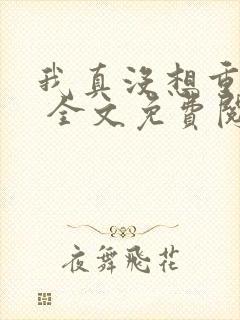 我真没想重
全文免費閱
夜舞飛花